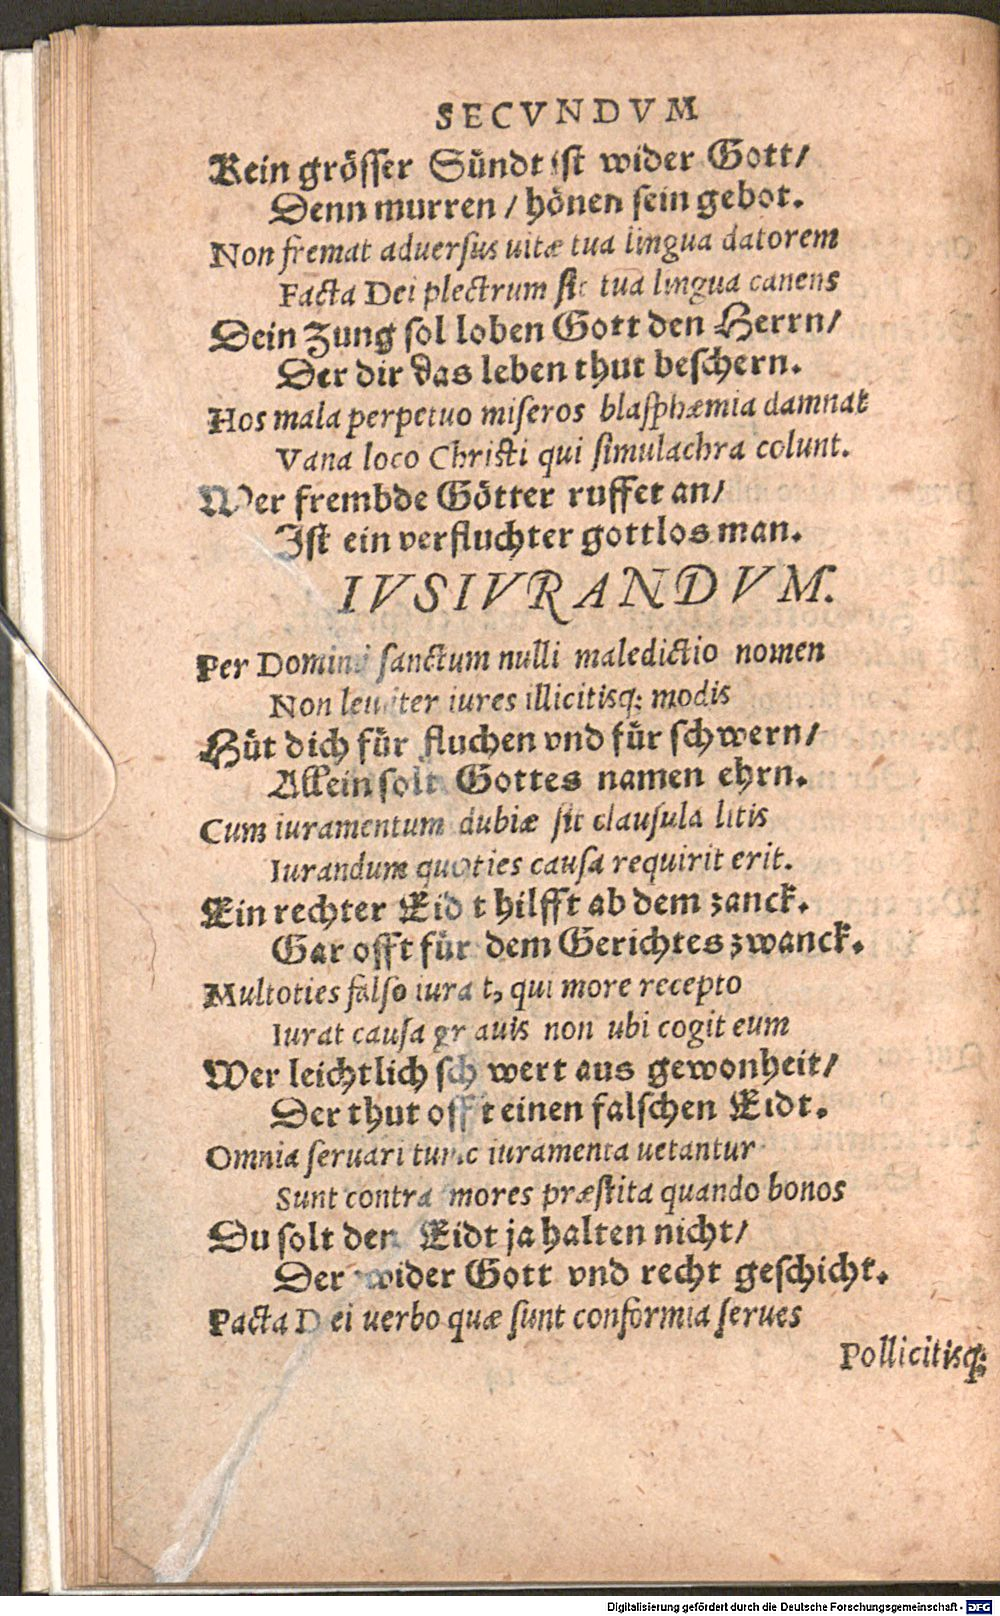 SECVNDVM
Kein grösser Sündt ist wider Gott/
Denn murren / hönen sein gebot.
Non fremat aduersus uitæ tua lingua datorem
Facta Dei plectrum sit tua lingua canens
Dein Zung sol loben Gott den Herrn/
Der dir das leben thut beschern.
Hos mala perpetuo miseros blasphæmia damnat
Vana loco Christi qui simulachra colunt.
Wer frembde Götter ruffet an/
Ist ein verfluchter gottlos man.
IVSIVRANDVM.
Per Domini sanctum nulli maledictio nomen
Non leuiter iures illicitisq; modis
Hüt dich für fluchen vnd für schwern/
Allein solt Gottes namen ehrn.
Cum iuramentum dubiæ sit clausula litis
Iurandum quoties causa requirit erit.
Ein rechter Eidt hilfft ab dem zanck.
Gar offt für dem Gerichtes zwanck.
Multoties falso iurat, qui more recepto
Iurat causa grauis non ubi cogit eum
Wer leichtlich schwert aus gewonheit/
Der thut offt einen falschen Eidt.
Omnia seruari tunc iuramenta uetantur
Sunt contra mores præstita quando bonos
Du solt den Eidt ja halten nicht/
Der wider Gott vnd recht geschicht.
Pacta Dei uerbo quæ sunt conformia serues
Pollicitisq;
Digitalisierung gefördert durch die Deutsche Forschungsgemeinschaft - DFG